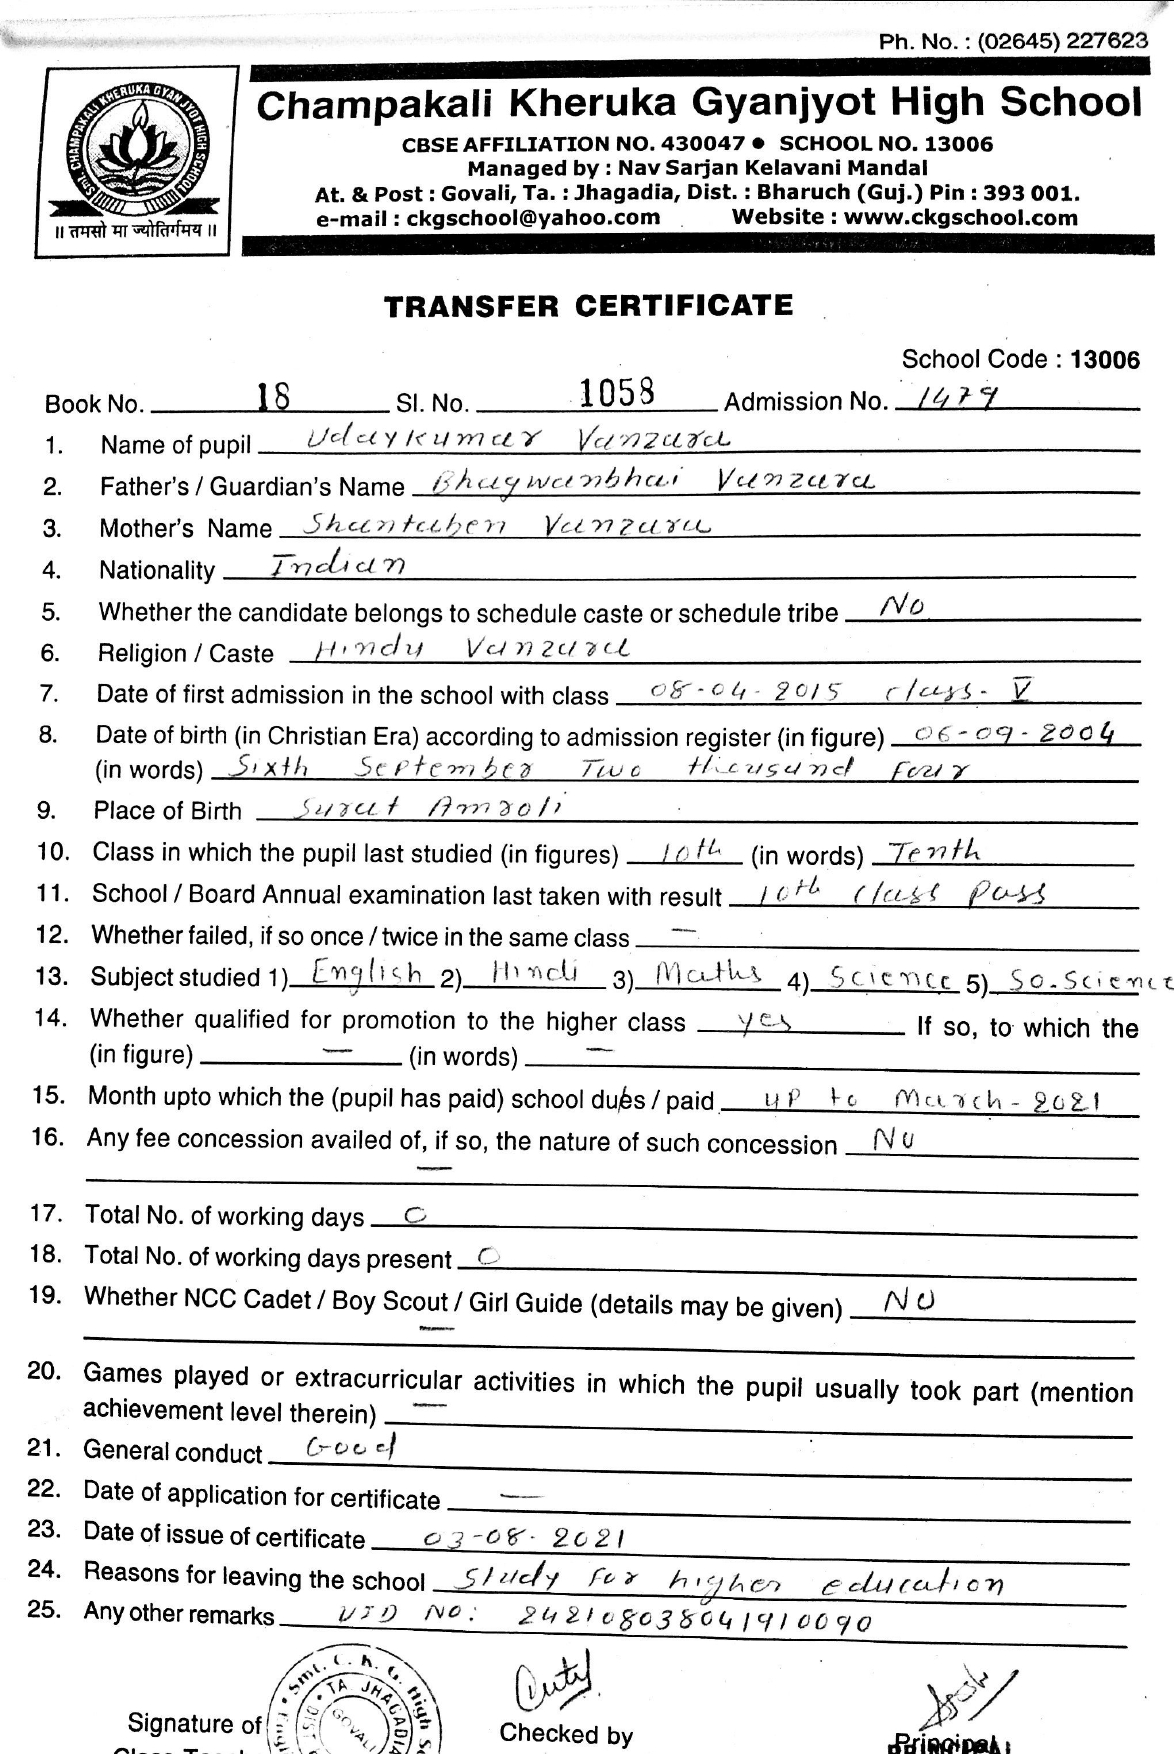 Ph. No. : (02645) 227623
SMT. CHAMPAKALI KHERUKA GYAN JYOT HIGH SCHOOL
|| तमसो मा ज्योतिर्गमय ||
Champakali Kheruka Gyanjyot High School
CBSE AFFILIATION NO. 430047 ● SCHOOL NO. 13006
Managed by : Nav Sarjan Kelavani Mandal
At. & Post : Govali, Ta. : Jhagadia, Dist. : Bharuch (Guj.) Pin : 393 001.
e-mail : ckgschool@yahoo.com Website : www.ckgschool.com
TRANSFER CERTIFICATE
School Code : 13006
Book No. 18 Sl. No. 1058 Admission No. 1479
1. Name of pupil Udaykumar Vanzara
2. Father's / Guardian's Name Bhagwanbhai Vanzara
3. Mother's Name Shantaben Vanzara
4. Nationality Indian
5. Whether the candidate belongs to schedule caste or schedule tribe No
6. Religion / Caste Hindu Vanzara
7. Date of first admission in the school with class 08-04-2015 class-V
8. Date of birth (in Christian Era) according to admission register (in figure) 06-09-2004
(in words) Sixth September Two thousand Four
9. Place of Birth Surat Amroli
10. Class in which the pupil last studied (in figures) 10th (in words) Tenth
11. School / Board Annual examination last taken with result 10th Class Pass
12. Whether failed, if so once / twice in the same class —
13. Subject studied 1) English 2) Hindi 3) Maths 4) Science 5) So.Science
14. Whether qualified for promotion to the higher class yes If so, to which the
(in figure) — (in words) —
15. Month upto which the (pupil has paid) school dues / paid up to March-2021
16. Any fee concession availed of, if so, the nature of such concession No
—
17. Total No. of working days 0
18. Total No. of working days present 0
19. Whether NCC Cadet / Boy Scout / Girl Guide (details may be given) NO
—
20. Games played or extracurricular activities in which the pupil usually took part (mention
achievement level therein) —
21. General conduct Good
22. Date of application for certificate —
23. Date of issue of certificate 03-08-2021
24. Reasons for leaving the school study for higher education
25. Any other remarks UID NO: 242108038041910090
Smt. C. K. G. High
TA. JHAGADIA
DIST
GOVALI
Signature of
Checked by
Principal